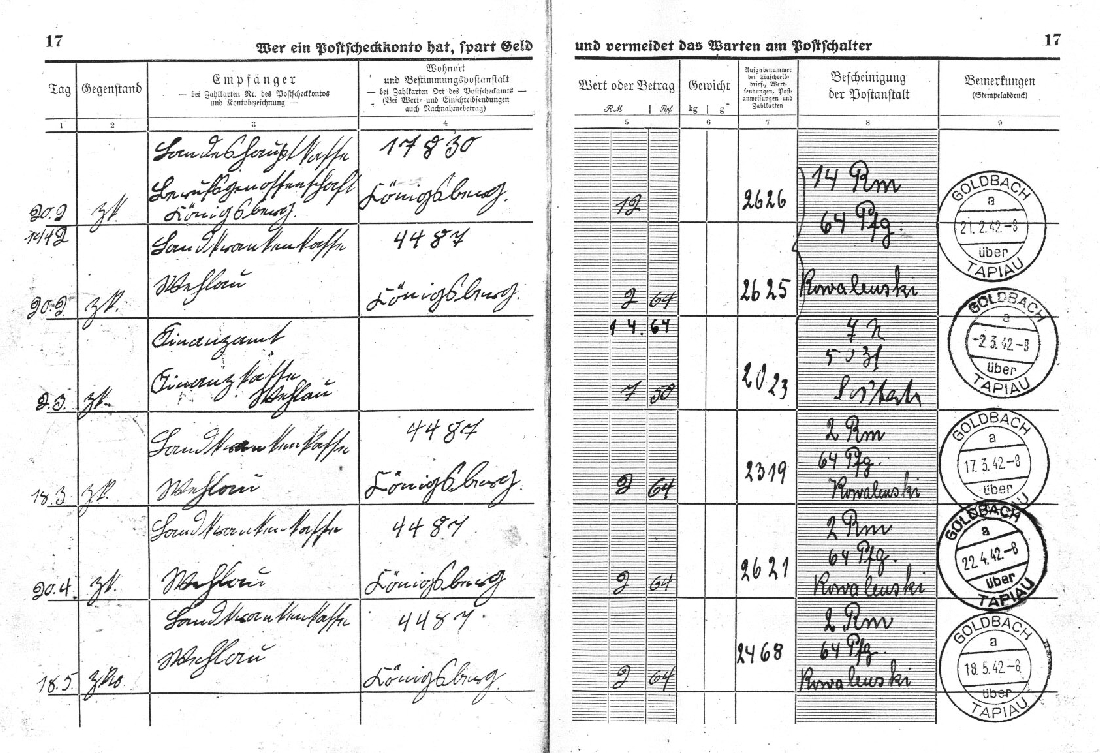 17
Wer ein Postscheckkonto hat, spart Geld
und vermeidet das Warten am Postschalter
17
Tag
Gegenstand
Empfänger
— bei Zahlkarten Nr. des Postscheckkontos
und Kontobezeichnung —
Wohnort
und Bestimmungspostanstalt
— bei Zahlkarten Ort des Postscheckamts —
(Bei Wert- und Einschreibsendungen
auch Nachnahmebetrag)
Wert oder Betrag
RM
Rpf
Gewicht
kg
g
Aufgabenummer
der Einschreib-
briefe, Wert-
sendungen, Post-
anweisungen und
Zahlkarten
Bescheinigung
der Postanstalt
Bemerkungen
(Stempelabdruck)
1 2 3 4 5 6 7 8 9
Landeshauptkasse 17830
Berufsgenossenschaft
20.2 Zk. Königsberg. Königsberg. 12 2626 14 Rm
64 Pfg.
GOLDBACH
a
21.2.42.-8
über
TAPIAU
1942
Landkrankenkasse 4487
Wehlau
20.2 Zk. Königsberg. 2 64 2625 Kowalewski
14.64
Finanzamt
Finanzkasse
2.3. Zk. Wehlau 7 50 2023
GOLDBACH
a
-2.3.42.-8
über
TAPIAU
Landkrankenkasse 4487
18.3. Zk. Wehlau Königsberg. 2 64 2319
2 Rm
64 Pfg.
Kowalewski
GOLDBACH
a
17.3.42-8
über
Landkrankenkasse 4487
20.4. Zk. Wehlau Königsberg 2 64 2621
2 Rm
64 Pfg.
Kowalewski
GOLDBACH
a
22.4.42-8
über
TAPIAU
Landkrankenkasse 4487
Wehlau
18.5. Königsberg. 2 64 2468
2 Rm
64 Pfg.
Kowalewski
GOLDBACH
a
18.5.42-8
über
TAPIAU